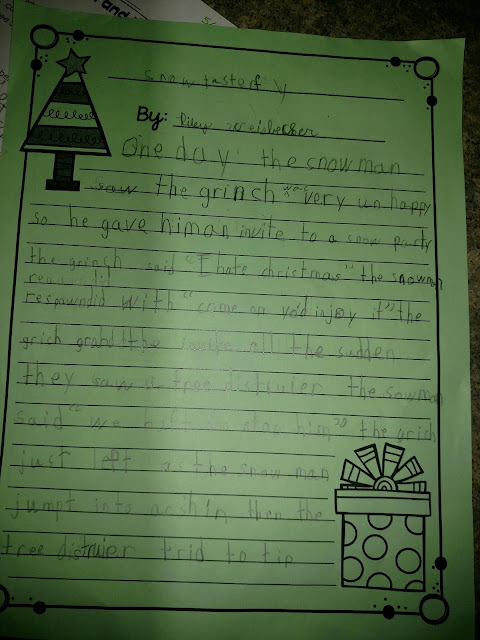 and
snow tastorf y
By: Riley
One day the snowman
saw the grinch was very un happy
so he gave himan invite to a snow party
the grinch said "I hate christmas" the snowman
respawndid with "come on yo'd injoy it" the
grich grabd the invite all the sudden
they saw a tree distruier the sowman
said "we haft to stop him" the grich
just left as the snow man
jumpt into acshin then the
tree distruier trid to tip